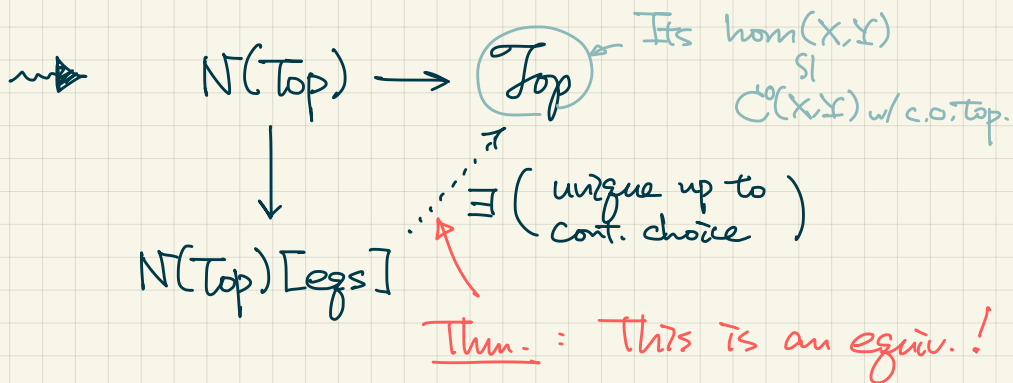 Its hom(X,Y)
SI
N(Top) → Top
C⁰(X,Y) w/ c.o. Top.
∃ ( unique up to
cont. choice )
N(Top)[eqs]
Thm. : This is an equiv.!